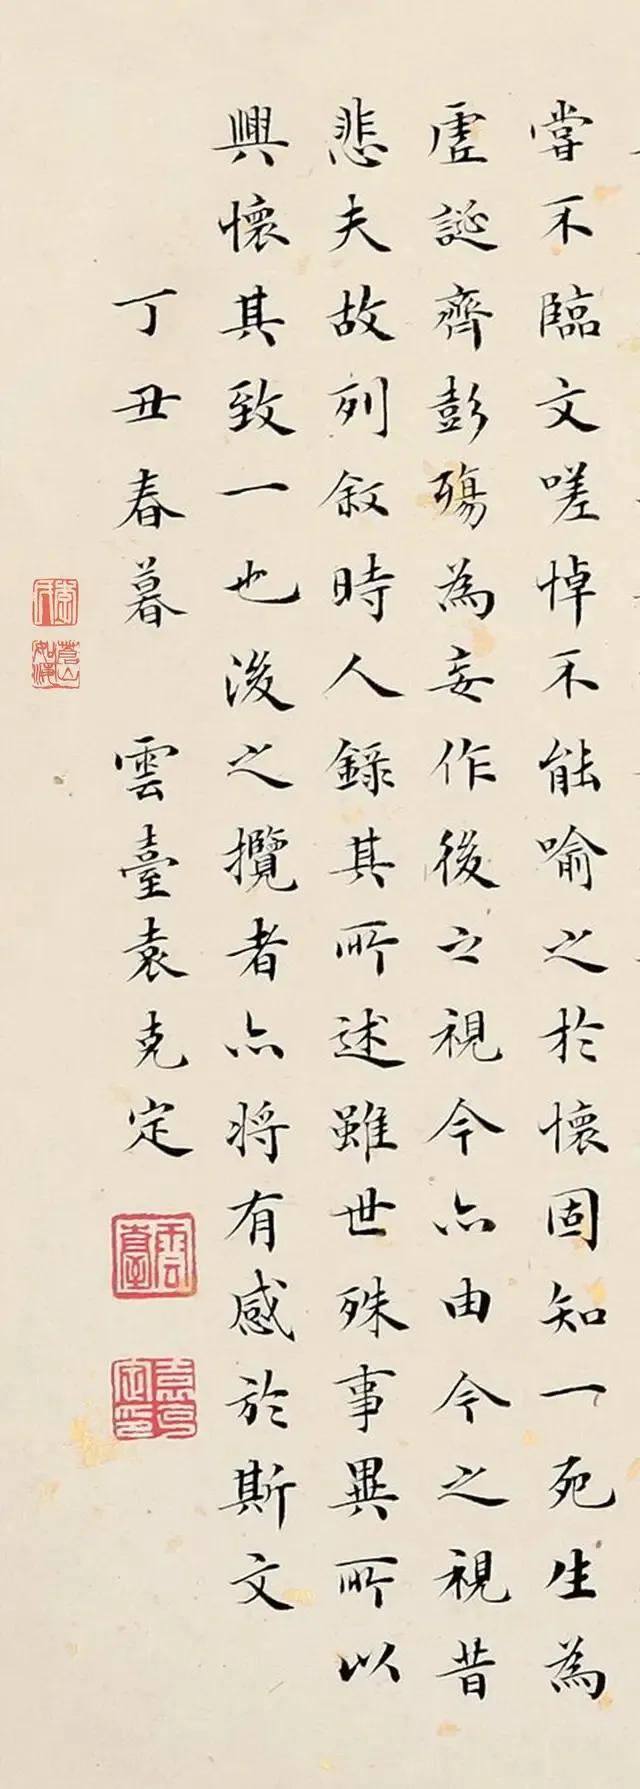 嘗不臨文嗟悼不能喻之於懷固知一死生為
虛誕齊彭殤為妄作後之視今亦由今之視昔
悲夫故列叙時人錄其所述雖世殊事異所以
興懷其致一也後之攬者亦將有感於斯文
丁丑春暮 雲臺袁克定
雲臺
袁克定印